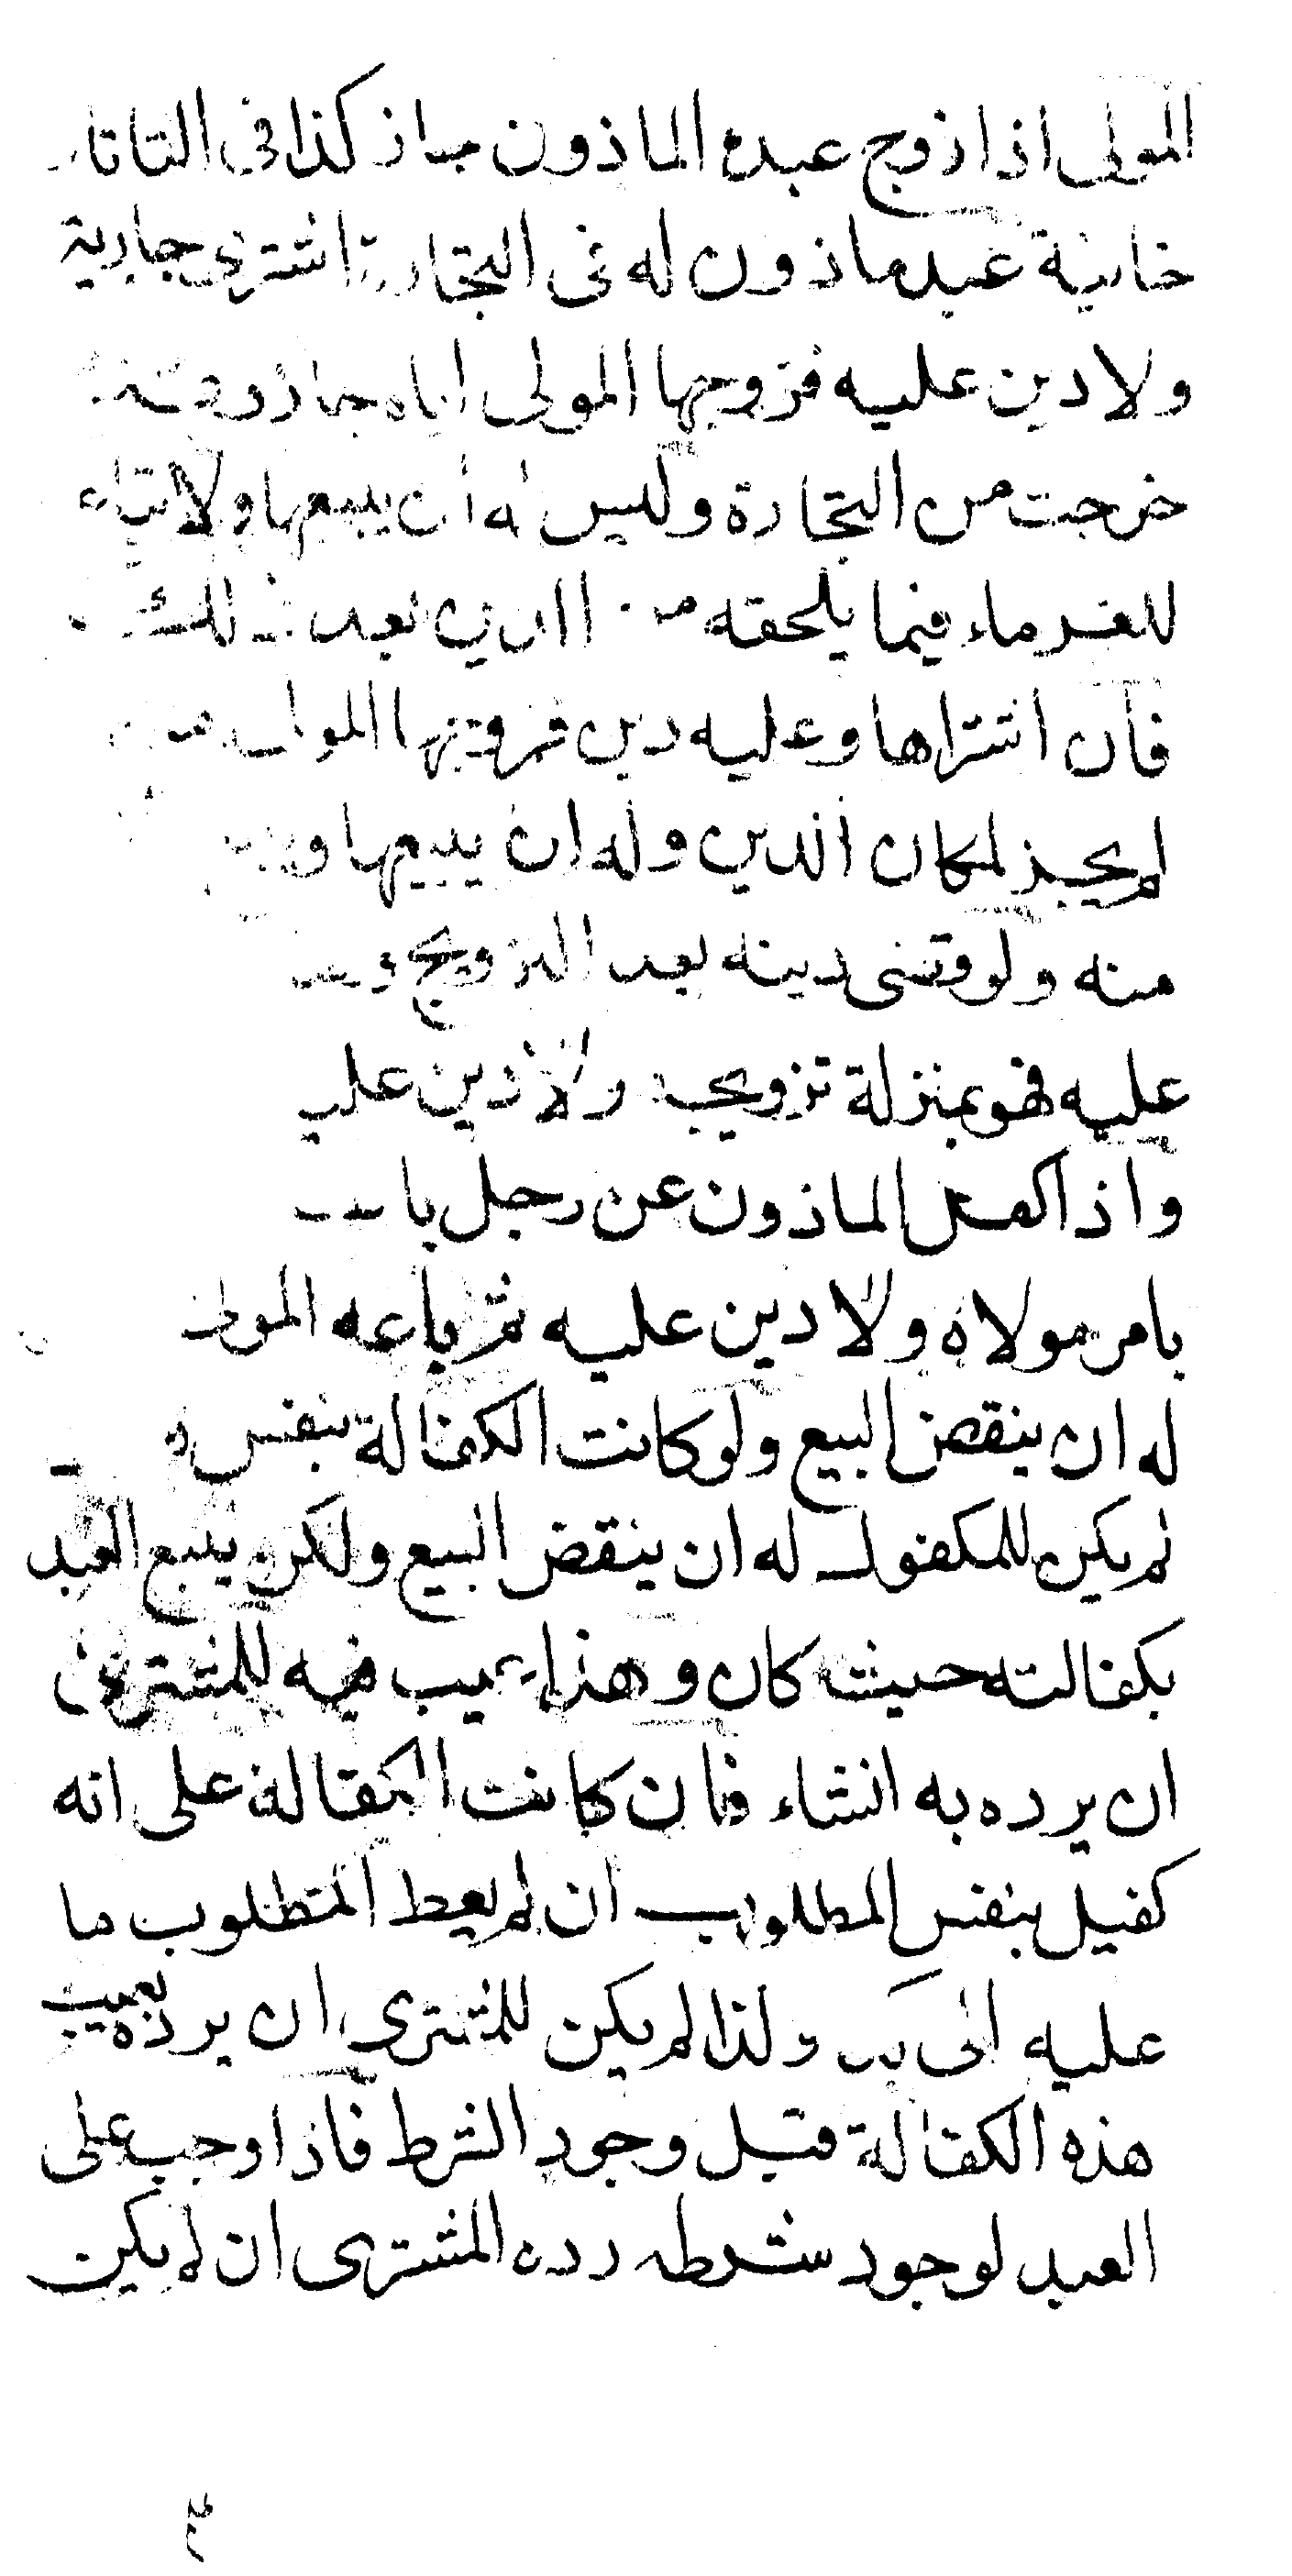 المولى اذا زوج عبده الماذون جاز كذا في التاتار
خانية عبد ماذون له في التجارة اشترى جارية
ولا دين عليه فزوجها المولى اياه جاز وقد
خرجت من التجارة وليس له ان يبيعها ولا تباع
للغرماء فيما يلحقه من الدين بعد ذلك
فان اشتراها وعليه دين فزوجها المولى منه
لم يجز لمكان الدين وله ان يبيعها
منه ولو قضى دينه بعد التزويج
عليه فهو بمنزلة تزويجه ولا دين عليه
واذا كفل الماذون عن رجل
بامر مولاه ولا دين عليه ثم باعه المولى
له ان ينقض البيع ولو كانت الكفالة بنفس
لم يكن للمكفول له ان ينقض البيع ولكن يتبع العبد
بكفالته حيث كان وهذا عيب فيه للمشتري
ان يرده به انشاء فان كانت الكفالة على انه
كفيل بنفس المطلوب ان لم يعط المطلوب ما
عليه الى ولذا لم يكن للمشتري ان يرده بعيب
هذه الكفالة قبل وجود الشرط فاذا وجب على
العبد لوجود شرطه رده المشترى ان لم يكن